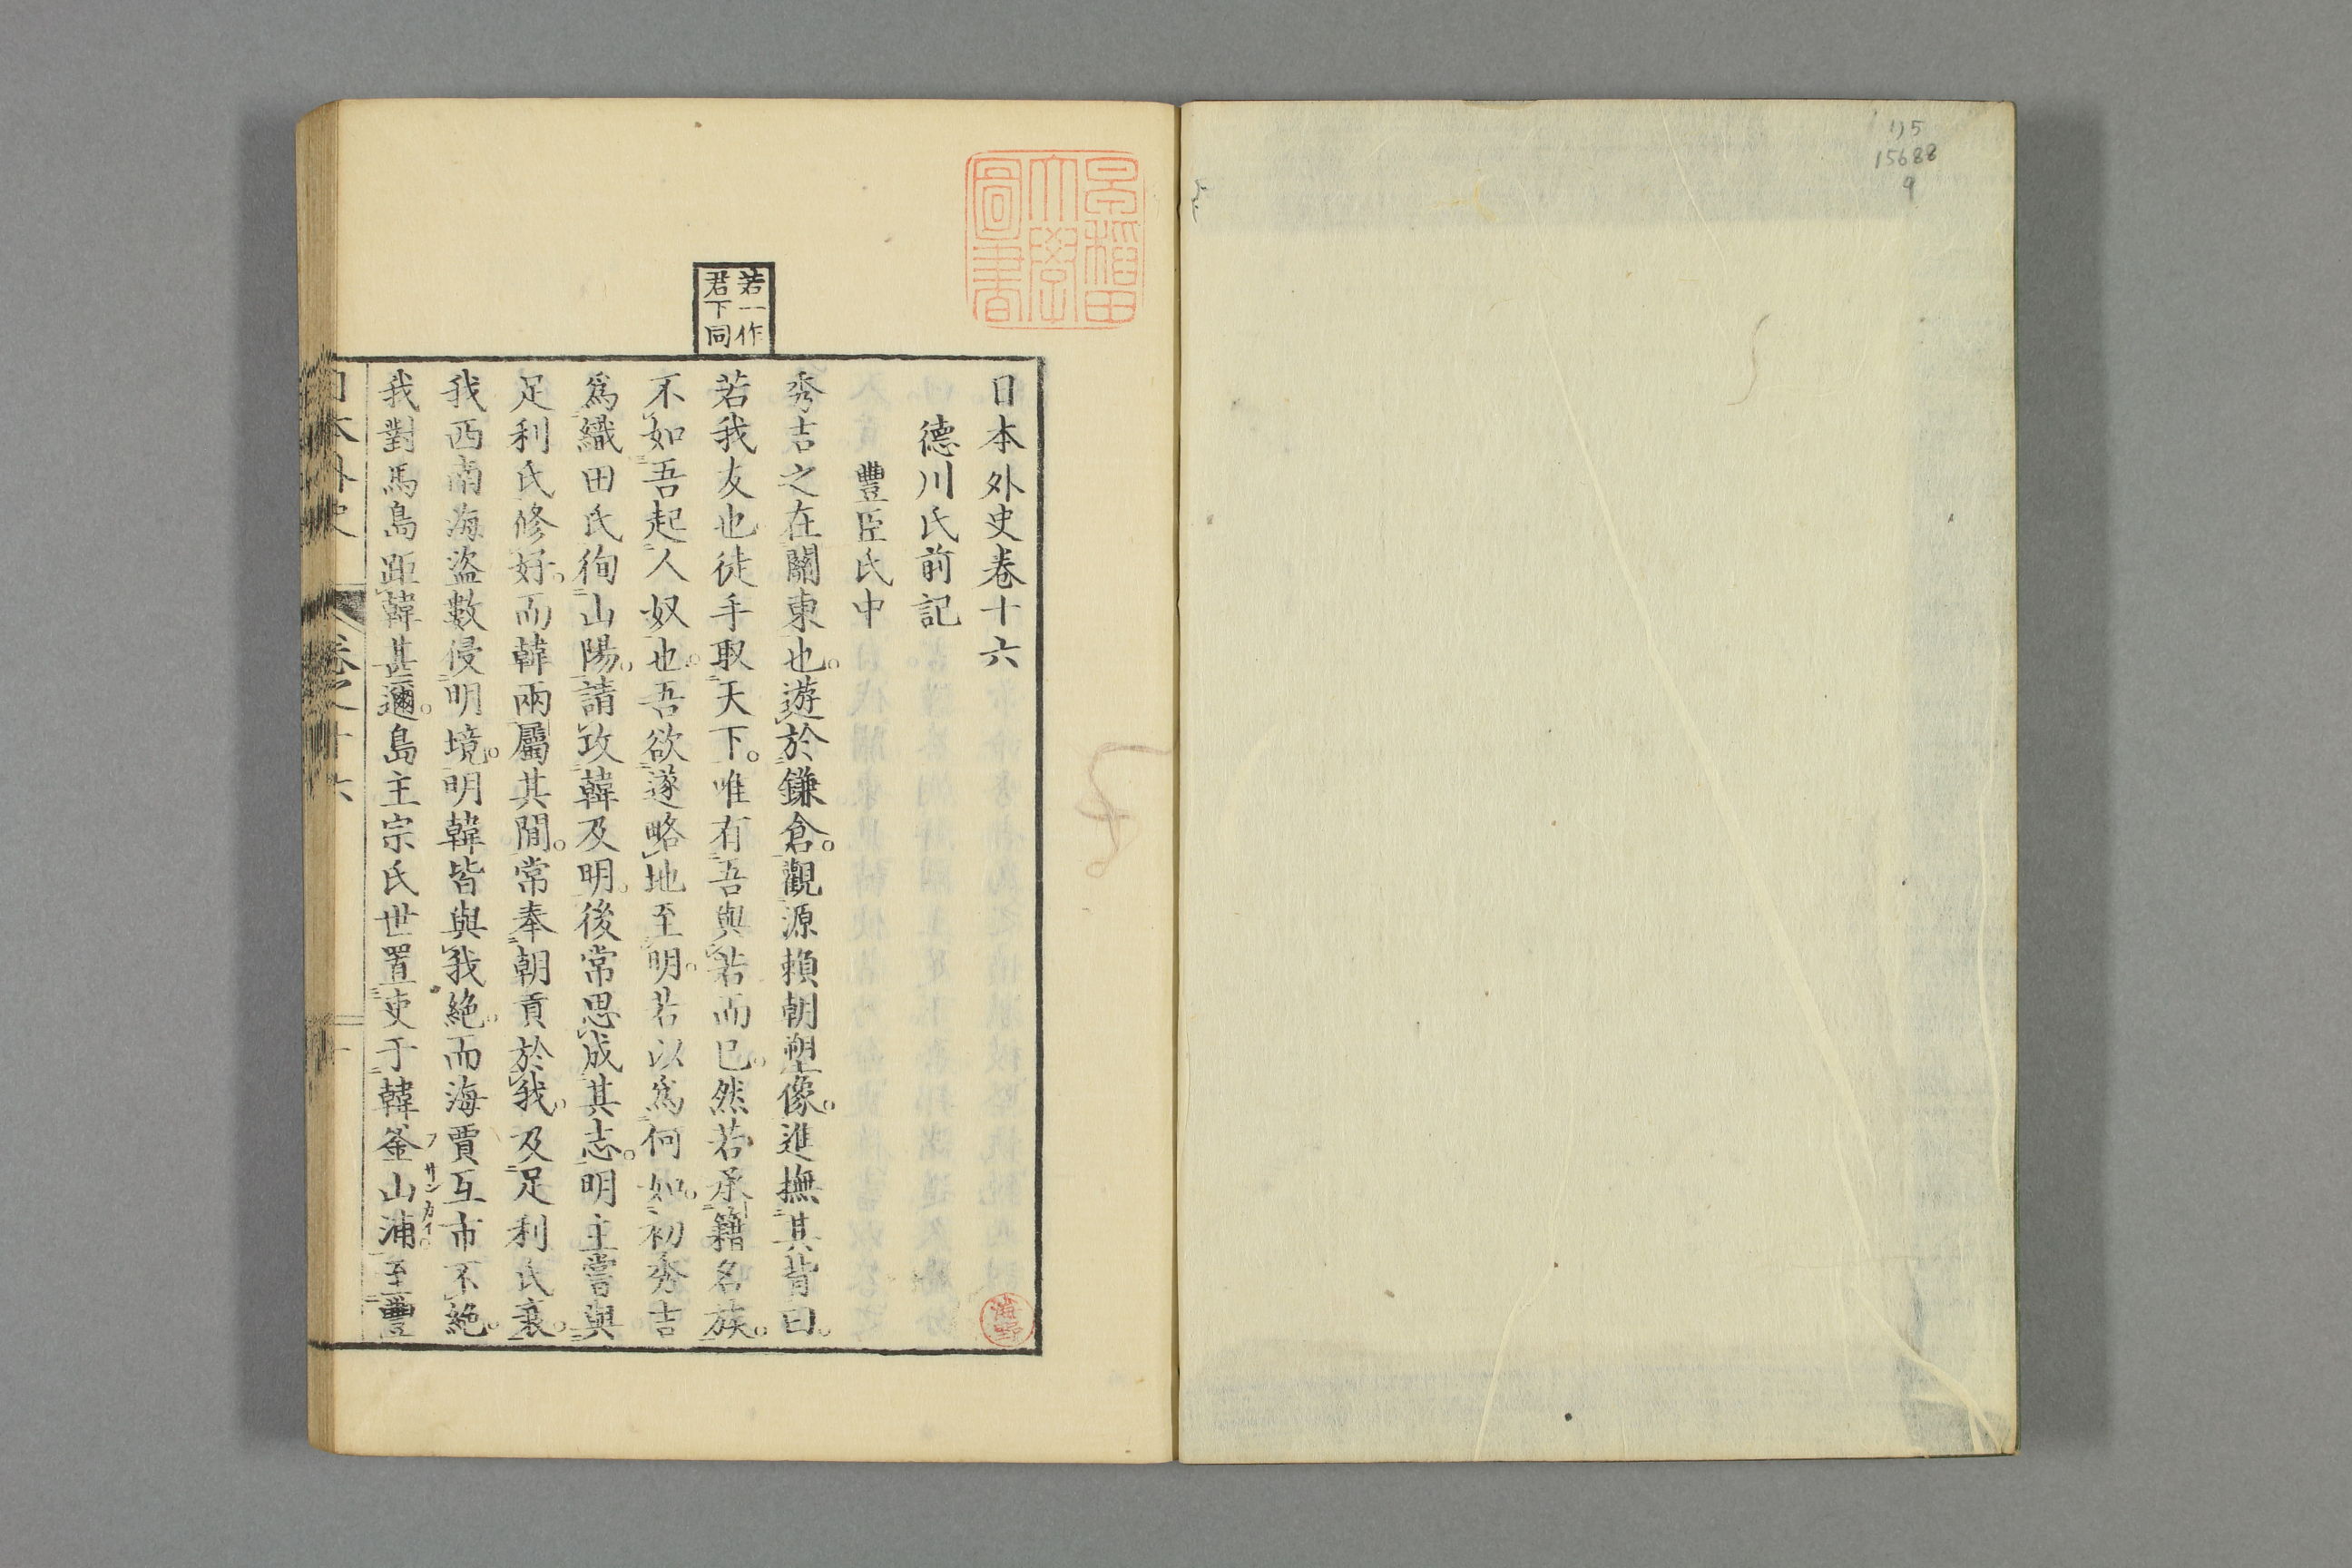 リ5
15688
9
早稲田
大學
圖書
若一作
君下同
日本外史卷十六
德川氏前記
豐臣氏中
秀吉之在關東也。遊於鎌倉。觀源賴朝塑像。進撫其背曰。
若我友也徒手取天下。唯有吾與若而已。然若承籍名族。
不如吾起人奴也。吾欲遂略地至明。若以爲何如。初秀吉
爲織田氏徇山陽。請攻韓及明。後常思成其志。明主嘗與
足利氏修好。而韓兩屬其間。常奉朝貢於我。及足利氏衰。
我西南海盜數侵明境。明韓皆與我絶。而海賈互市不絶。
我對馬島距韓甚邇。島主宗氏世置吏于韓釜山浦至豐
フサンカイ
日本外史 卷之十六 一